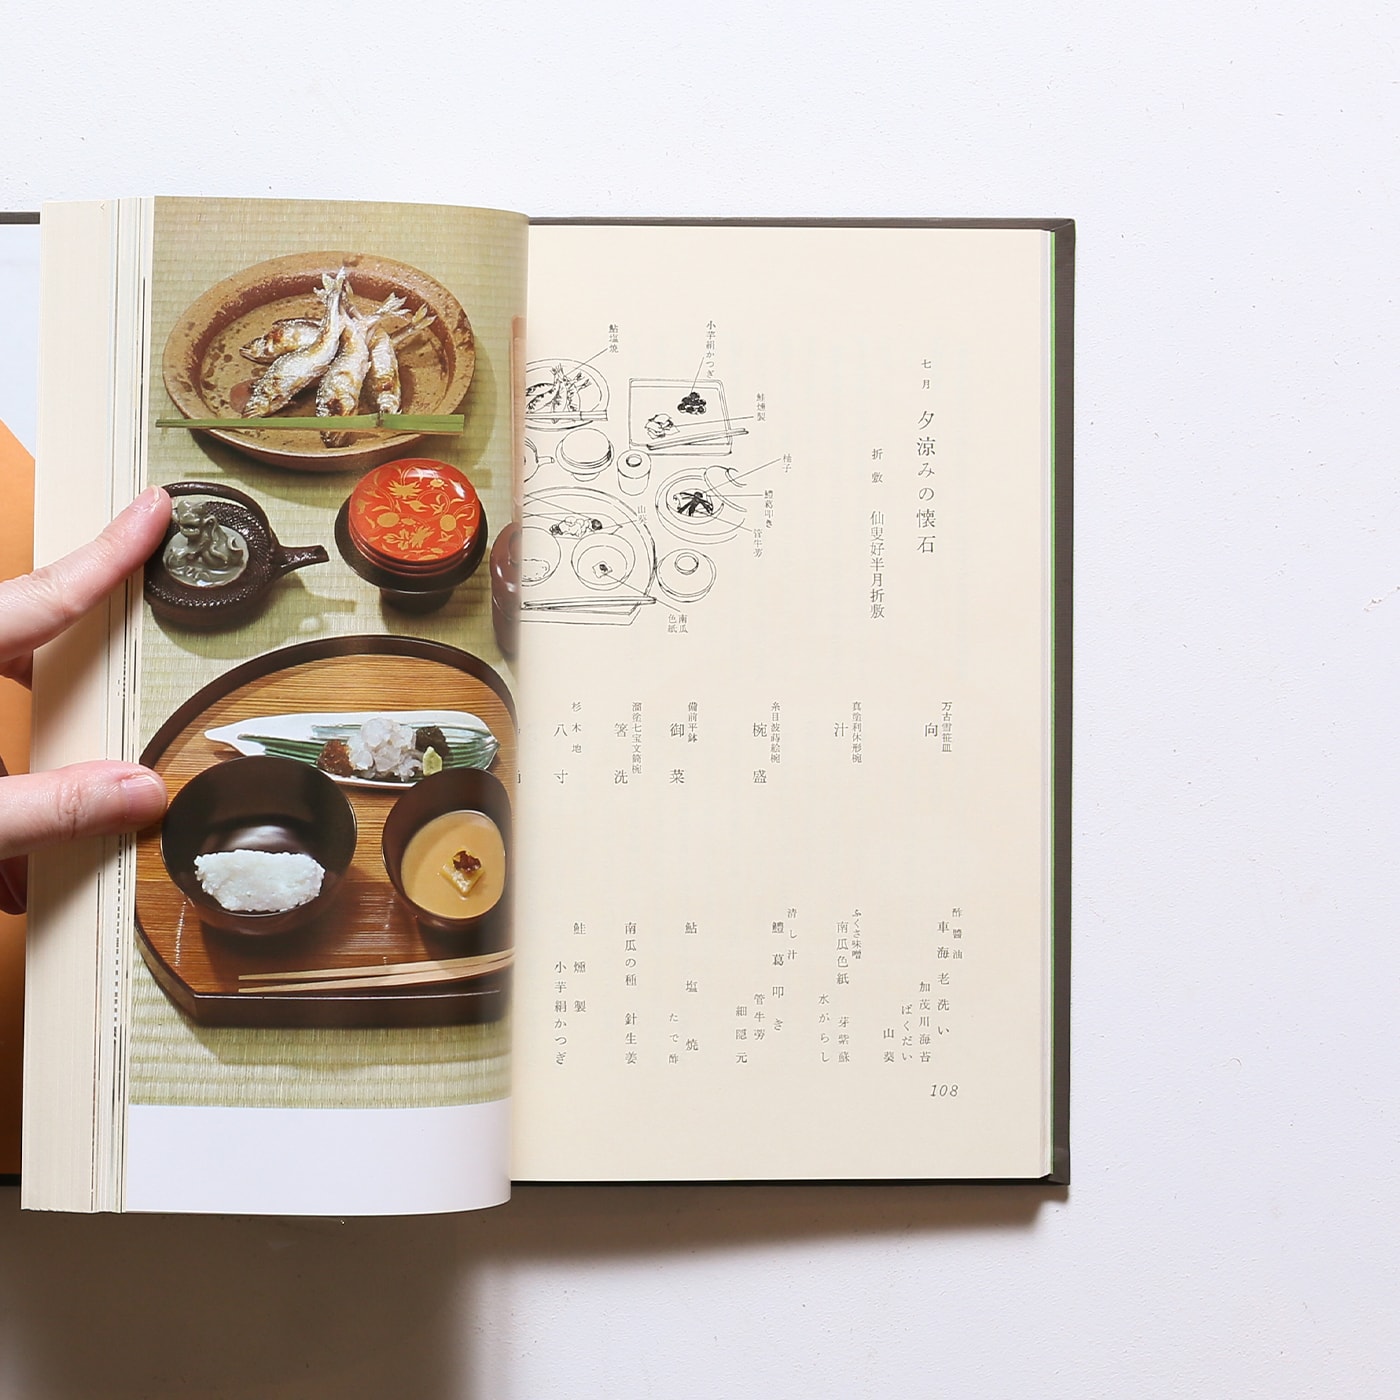 七月 夕涼みの懐石
折敷 仙叟好半月折敷
小芋絹かつぎ
鮎塩焼
鮭燻製
柚子
鱧葛叩き
管牛蒡
山葵
南瓜
色紙
万古雪笹皿
向
酢醤油
車海老洗い
加茂川海苔
ばくだい
山葵
真塗利休形椀
汁
ふくさ味噌
南瓜色紙 芽紫蘇
水がらし
糸目波蒔絵椀
椀盛
清し汁
鱧葛叩き
管牛蒡
細隠元
備前平鉢
御菜
鮎塩焼
たで酢
溜塗七宝文筒椀
箸洗
南瓜の種 針生姜
杉木地
八寸
鮭燻製
小芋絹かつぎ
108